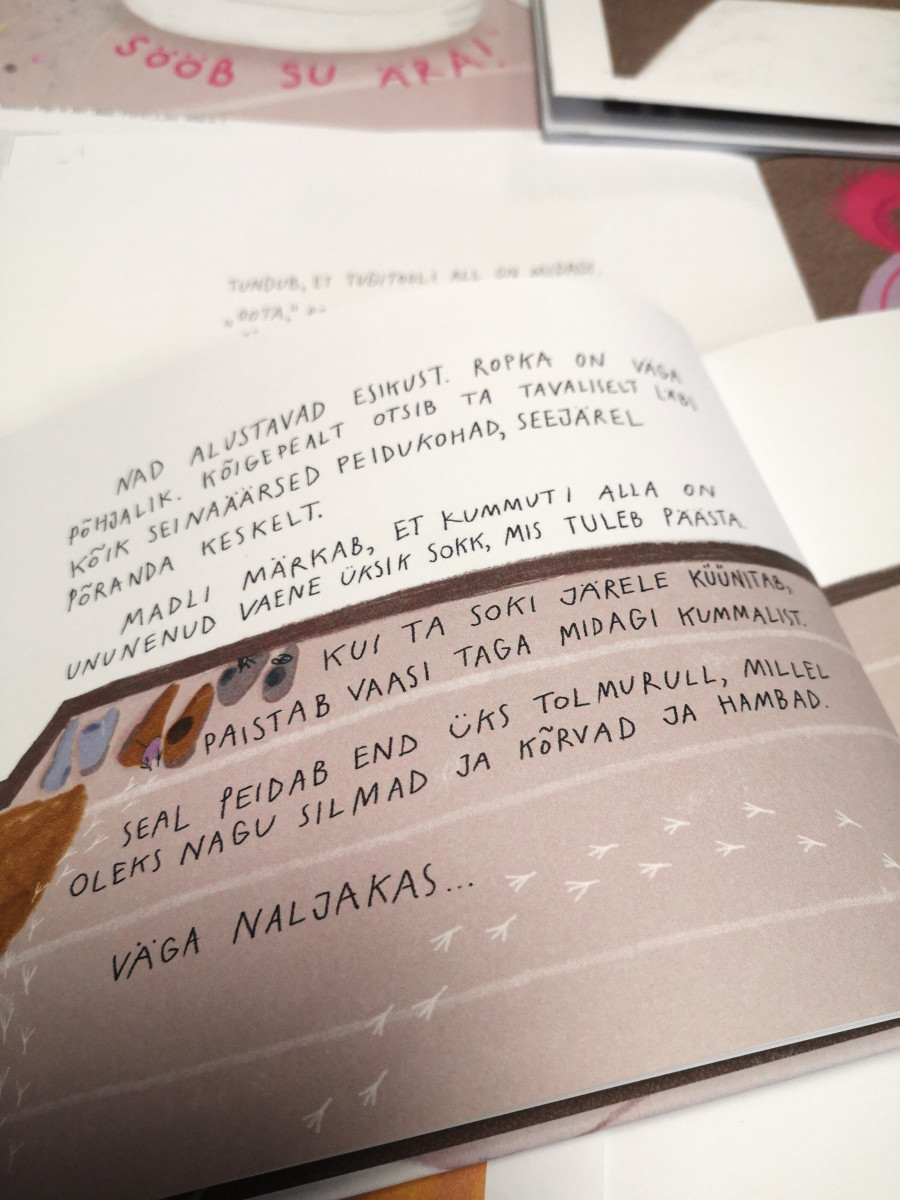 SÖÖB SU ÄRA!
TUNDUB, ET TUGITOOLI ALL ON
"OOTA,"
NAD ALUSTAVAD ESIKUST. ROPKA ON VÄGA
PÕHJALIK. KÕIGEPEALT OTSIB TA TAVALISELT LÄBI
KÕIK SEINAÄÄRSED PEIDUKOHAD, SEEJÄREL
PÕRANDA KESKELT.
MADLI MÄRKAB, ET KUMMUTI ALLA ON
UNUNENUD VAENE ÜKSIK SOKK, MIS TULEB PÄÄSTA.
KUI TA SOKI JÄRELE KÜÜNITAB,
PAISTAB VAASI TAGA MIDAGI KUMMALIST.
SEAL PEIDAB END ÜKS TOLMURULL, MILLEL
OLEKS NAGU SILMAD JA KÕRVAD JA HAMBAD.
VÄGA NALJAKAS...